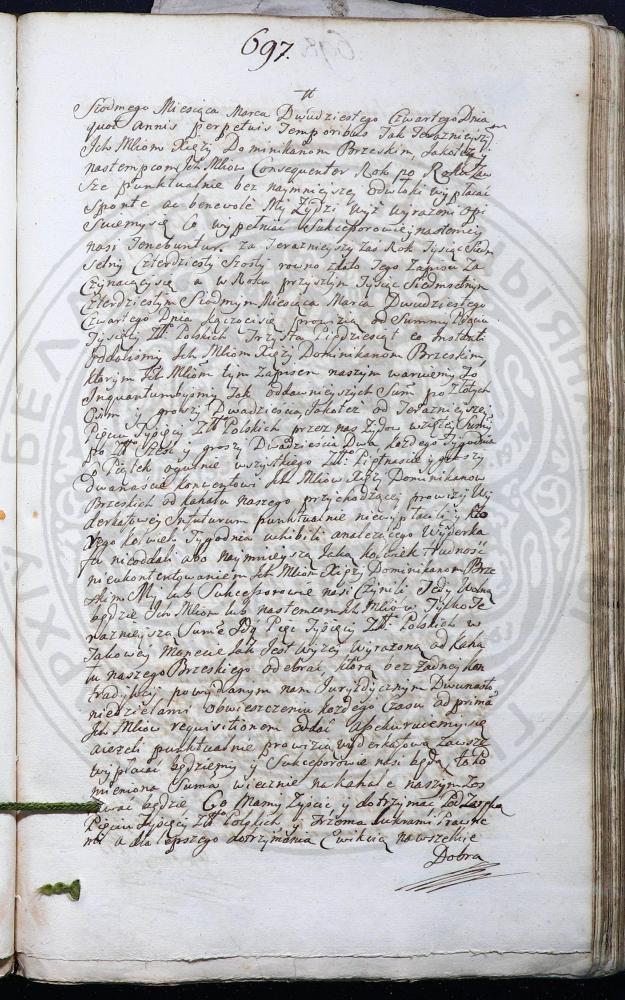 697.
Siodmego Miesiąca Marca Dwudziestego Czwartego Dnia
quot Annis perpetuis Temporibus Tak Teraznieyszy
Ich Mśiom Xięży Dominikanom Brzeskim, Jako też y
nastempcom Ich Mśiow Consequenter Rok po Roku Zaw
sze punktualnie bez naymnieyszey odwłoki wypłacać
sponte ac benevole My Żydzi wyż wyrażeni opi
suiemy się Co wypełniać Sukcesorowie y nastempcy
nasi Tenebuntur. Za Teraznieyszy zaś Rok Tysiąc Sied
setny Czterdziesty Szosty rowno z datą Tego Zapisu Za
czynaiący się a w Roku przyszłym Tysiąc Siedmsetnym
Czterdziestym Siodmym Miesiąca Marca Dwudziestego
Czwartego Dnia kączący się prowizią od Summy Pięciu
Tysięcy Złł Polskich Trzysta Pięćdziesiąt co Instanti
oddaliśmy Ich Mśiom Xięży Dominikanom Brzeskim,
ktorym Ich Mśiom tym Zapisem naszym waruiemy Jż
Inquantumbyśmy Tak od dawnieyszych Sum po Złotych
Ośm y groszy Dwadzieścia, Jako też od Teraznieyszey
Pięciu Tysięcy Złł Polskich przez nas Żydow wziętey Sumy
po Złł Sześć y groszy Dwadzieścia Dwa każdego Tygodnia
w Piątek ogulnie wszystkiego Złł: Piętnaście y groszy
Dwanaście konwentowi Ich Mśiow Xięży Dominikanow
Brzeskich od kahału naszego przychodzącey prowizyi Wy
derkafowey Infuturum punktualnie nie wypłacili y kto
rego kolwiek Tygodnia uchibili należącego Wyderka
fu nieoddali abo naymnieyszą Jaką kolwiek trudność
nieukontentowaniem Ich Mśiom Xięży Dominikanom Brze
skim My lub Sukcesorowie nasi Czynili Tedy Wolno
będzie Ich Mśiom lub nastempcom Ich Mśiow Tylko Te
raznieyszą Sumę Pięć Tysięcy Złł Polskich w
Takowey Monecie Jak Jest wyżey wyrażona od kaha
łu naszego Brzeskiego odebrać, którą bez żadney kon
tradykcyi po wydanym nam Jurydycznym Dwunastą
niedzielami obwieszczeniu każdego Czasu ad prima
Ich Mśiow requisitionem oddać Assekuruiemy się
a ieżeli punktualnie prowizią wyderkafową zawsze
wypłacać będziemy y Sukcesorowie nasi będą ta po
mieniona Suma wiecznie na kahale naszym Zos
tawać będzie Co Mamy Zyścić y dotrzymać Pod Zaręką
Pięciu Tysięcy Złł Polskich y Trzema winami Prawne
mi a dla lepszego dotrzymania Ewikcią na wszelkie
Dobra